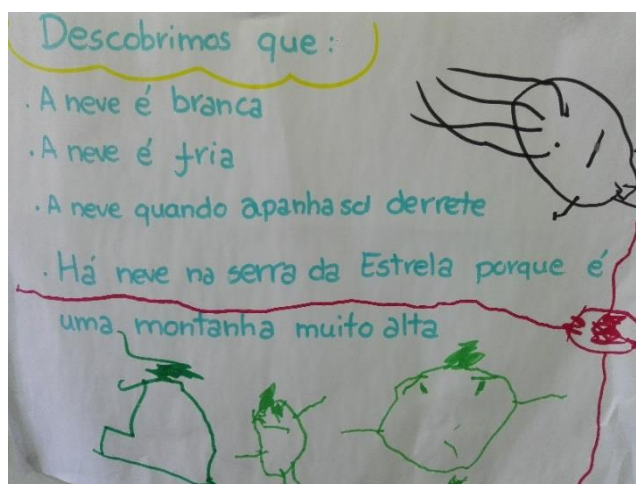 Descobrimos que:
. A neve é branca
. A neve é fria
. A neve quando apanha sol derrete
. Há neve na serra da Estrela porque é
uma montanha muito alta